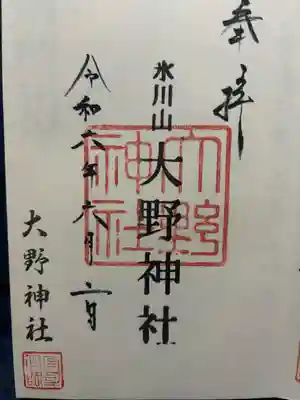 奉拝
氷川山
大野神社
大野神社
令和六年六月二日
大野神社